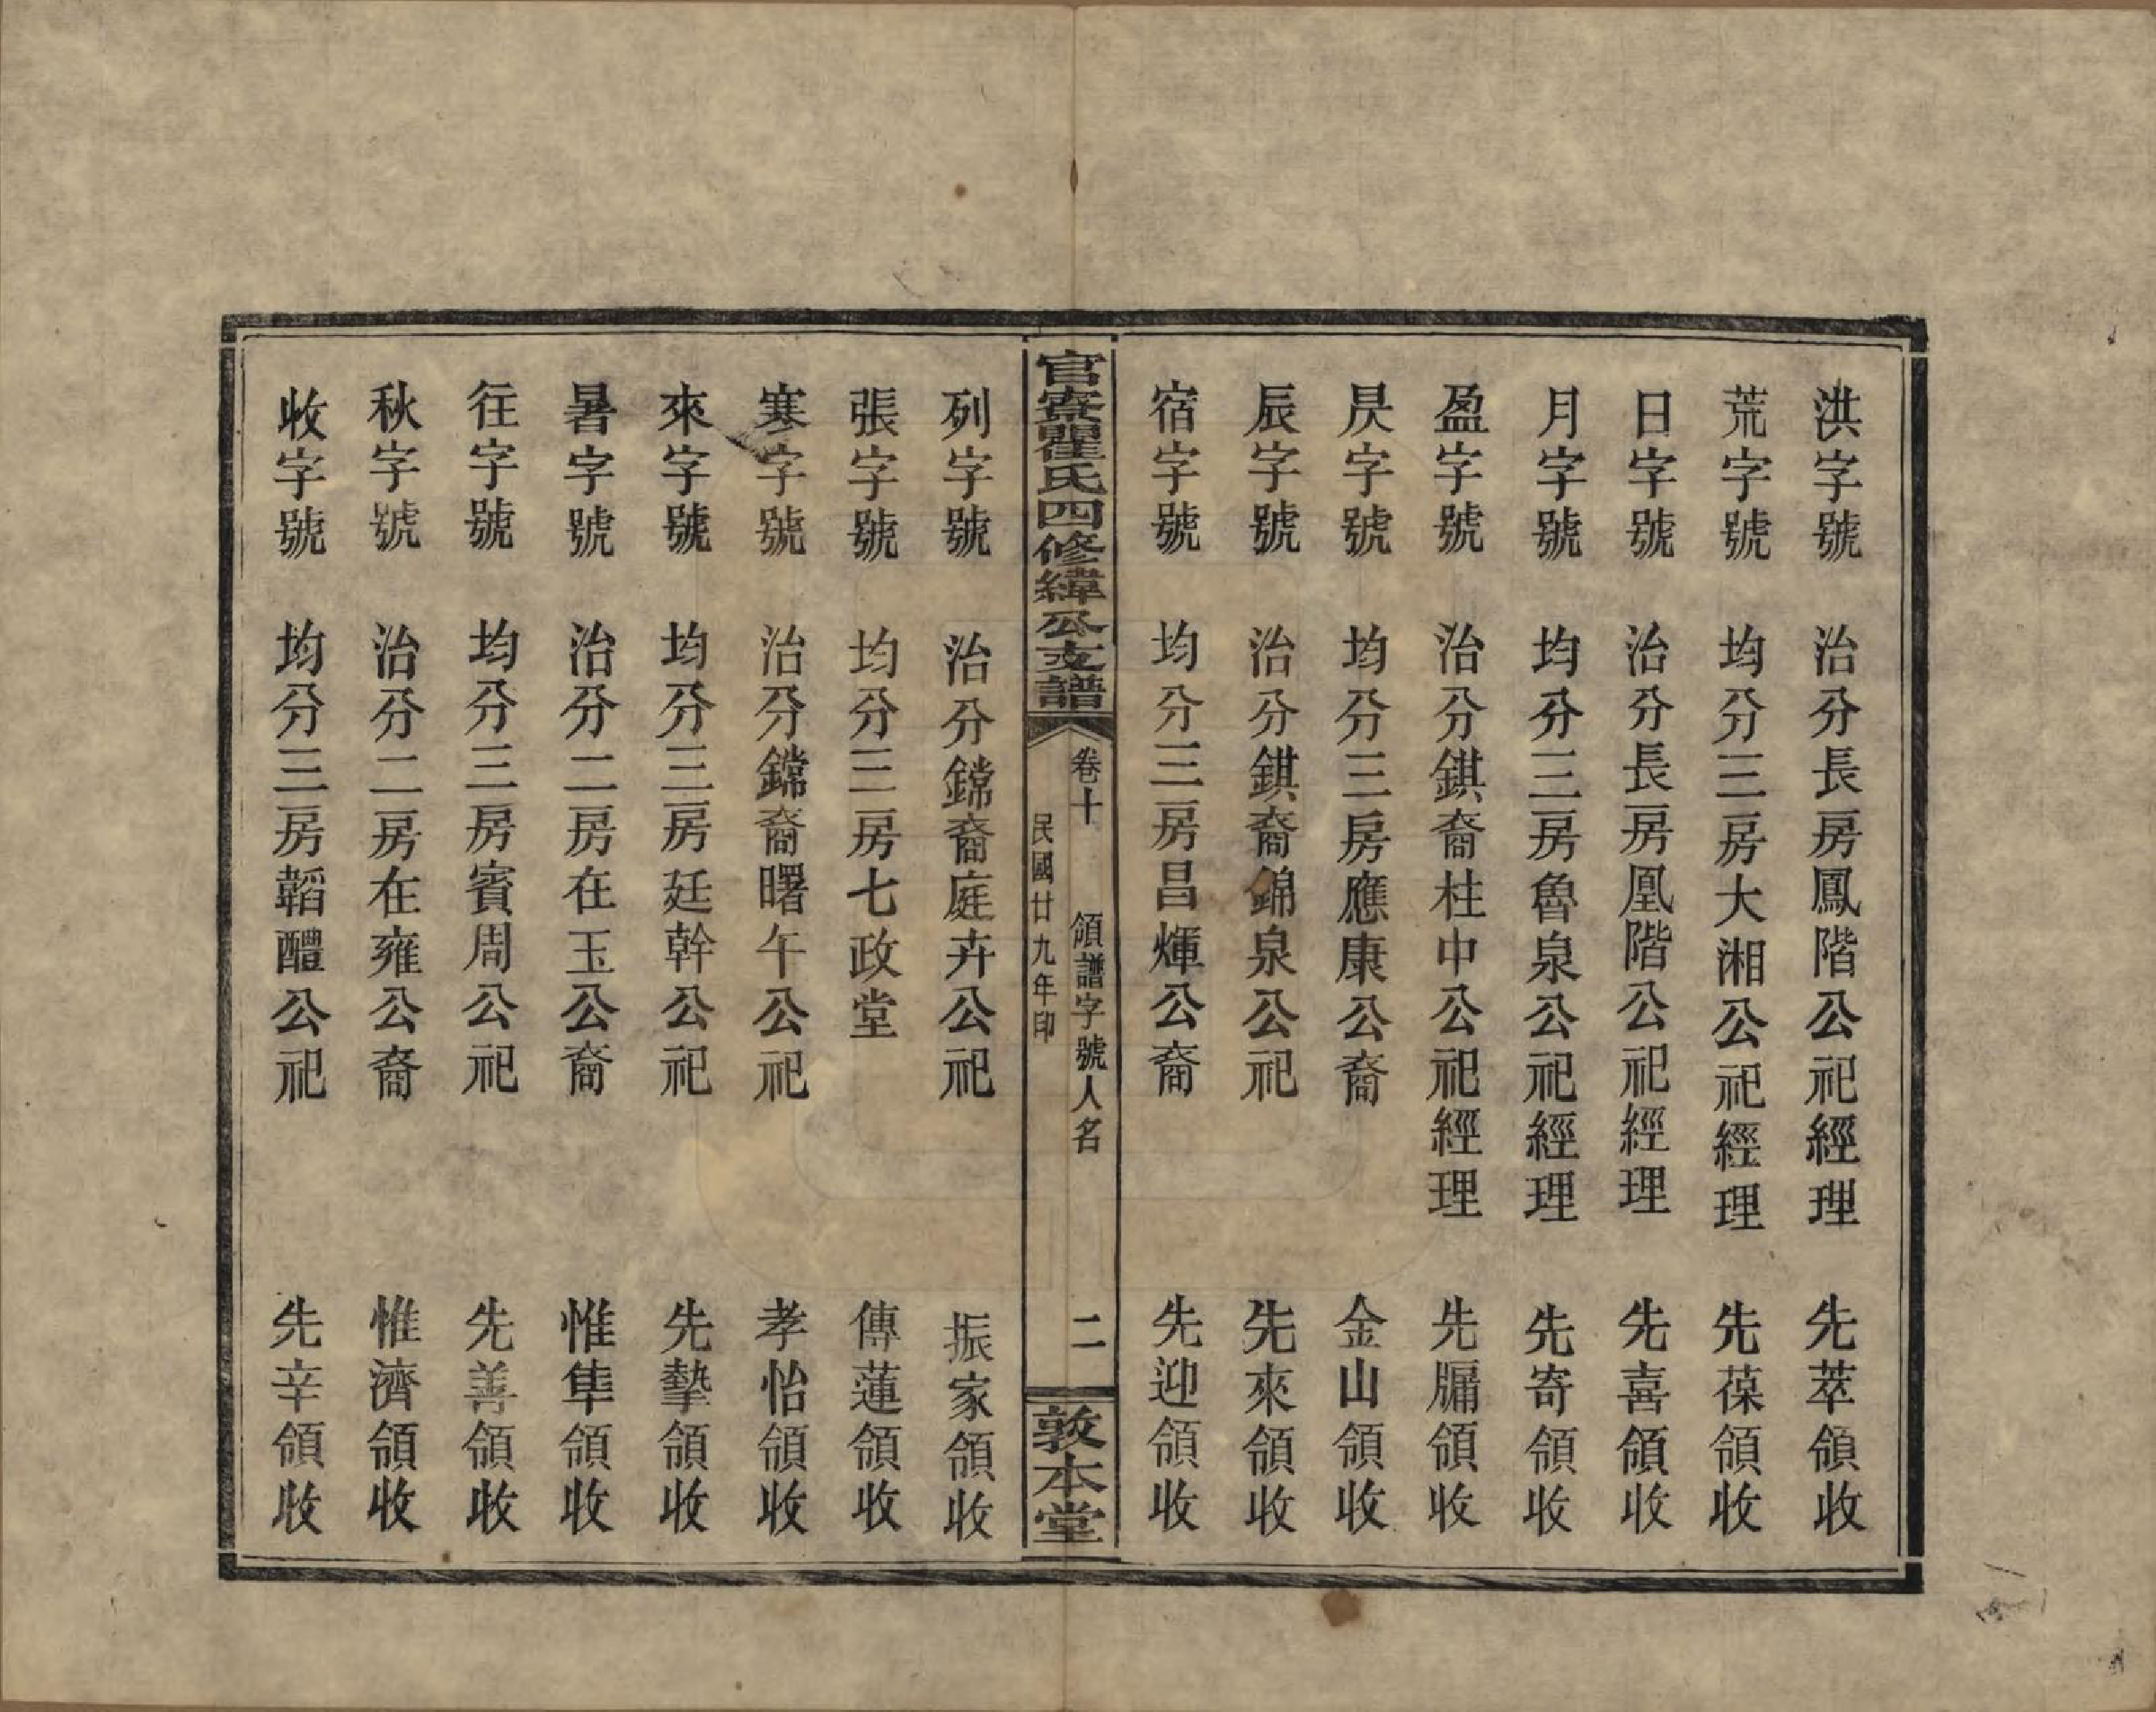 洪字號 治分長房鳳階公祀經理 先萃領收
荒字號 均分三房大湘公祀經理 先葆領收
日字號 治分長房凰階公祀經理 先喜領收
月字號 均分三房魯泉公祀經理 先寄領收
盈字號 治分鉷裔柱中公祀經理 先牖領收
昃字號 均分三房應康公裔 金山領收
辰字號 治分鉷裔錦泉公祀 先來領收
宿字號 均分三房昌煇公裔 先迎領收
官寮瞿氏四修緯公支譜
卷十 領譜字號人名 二
民國廿九年印
敦本堂
列字號 治分鐺裔庭卉公祀 振家領收
張字號 均分三房七政堂 傳蓮領收
寒字號 治分鐺裔曙午公祀 孝怡領收
來字號 均分三房廷幹公祀 先摯領收
暑字號 治分二房在玉公裔 惟隼領收
往字號 均分三房賓周公祀 先善領收
秋字號 治分二房在雍公裔 惟濟領收
收字號 均分三房韜醴公祀 先辛領收